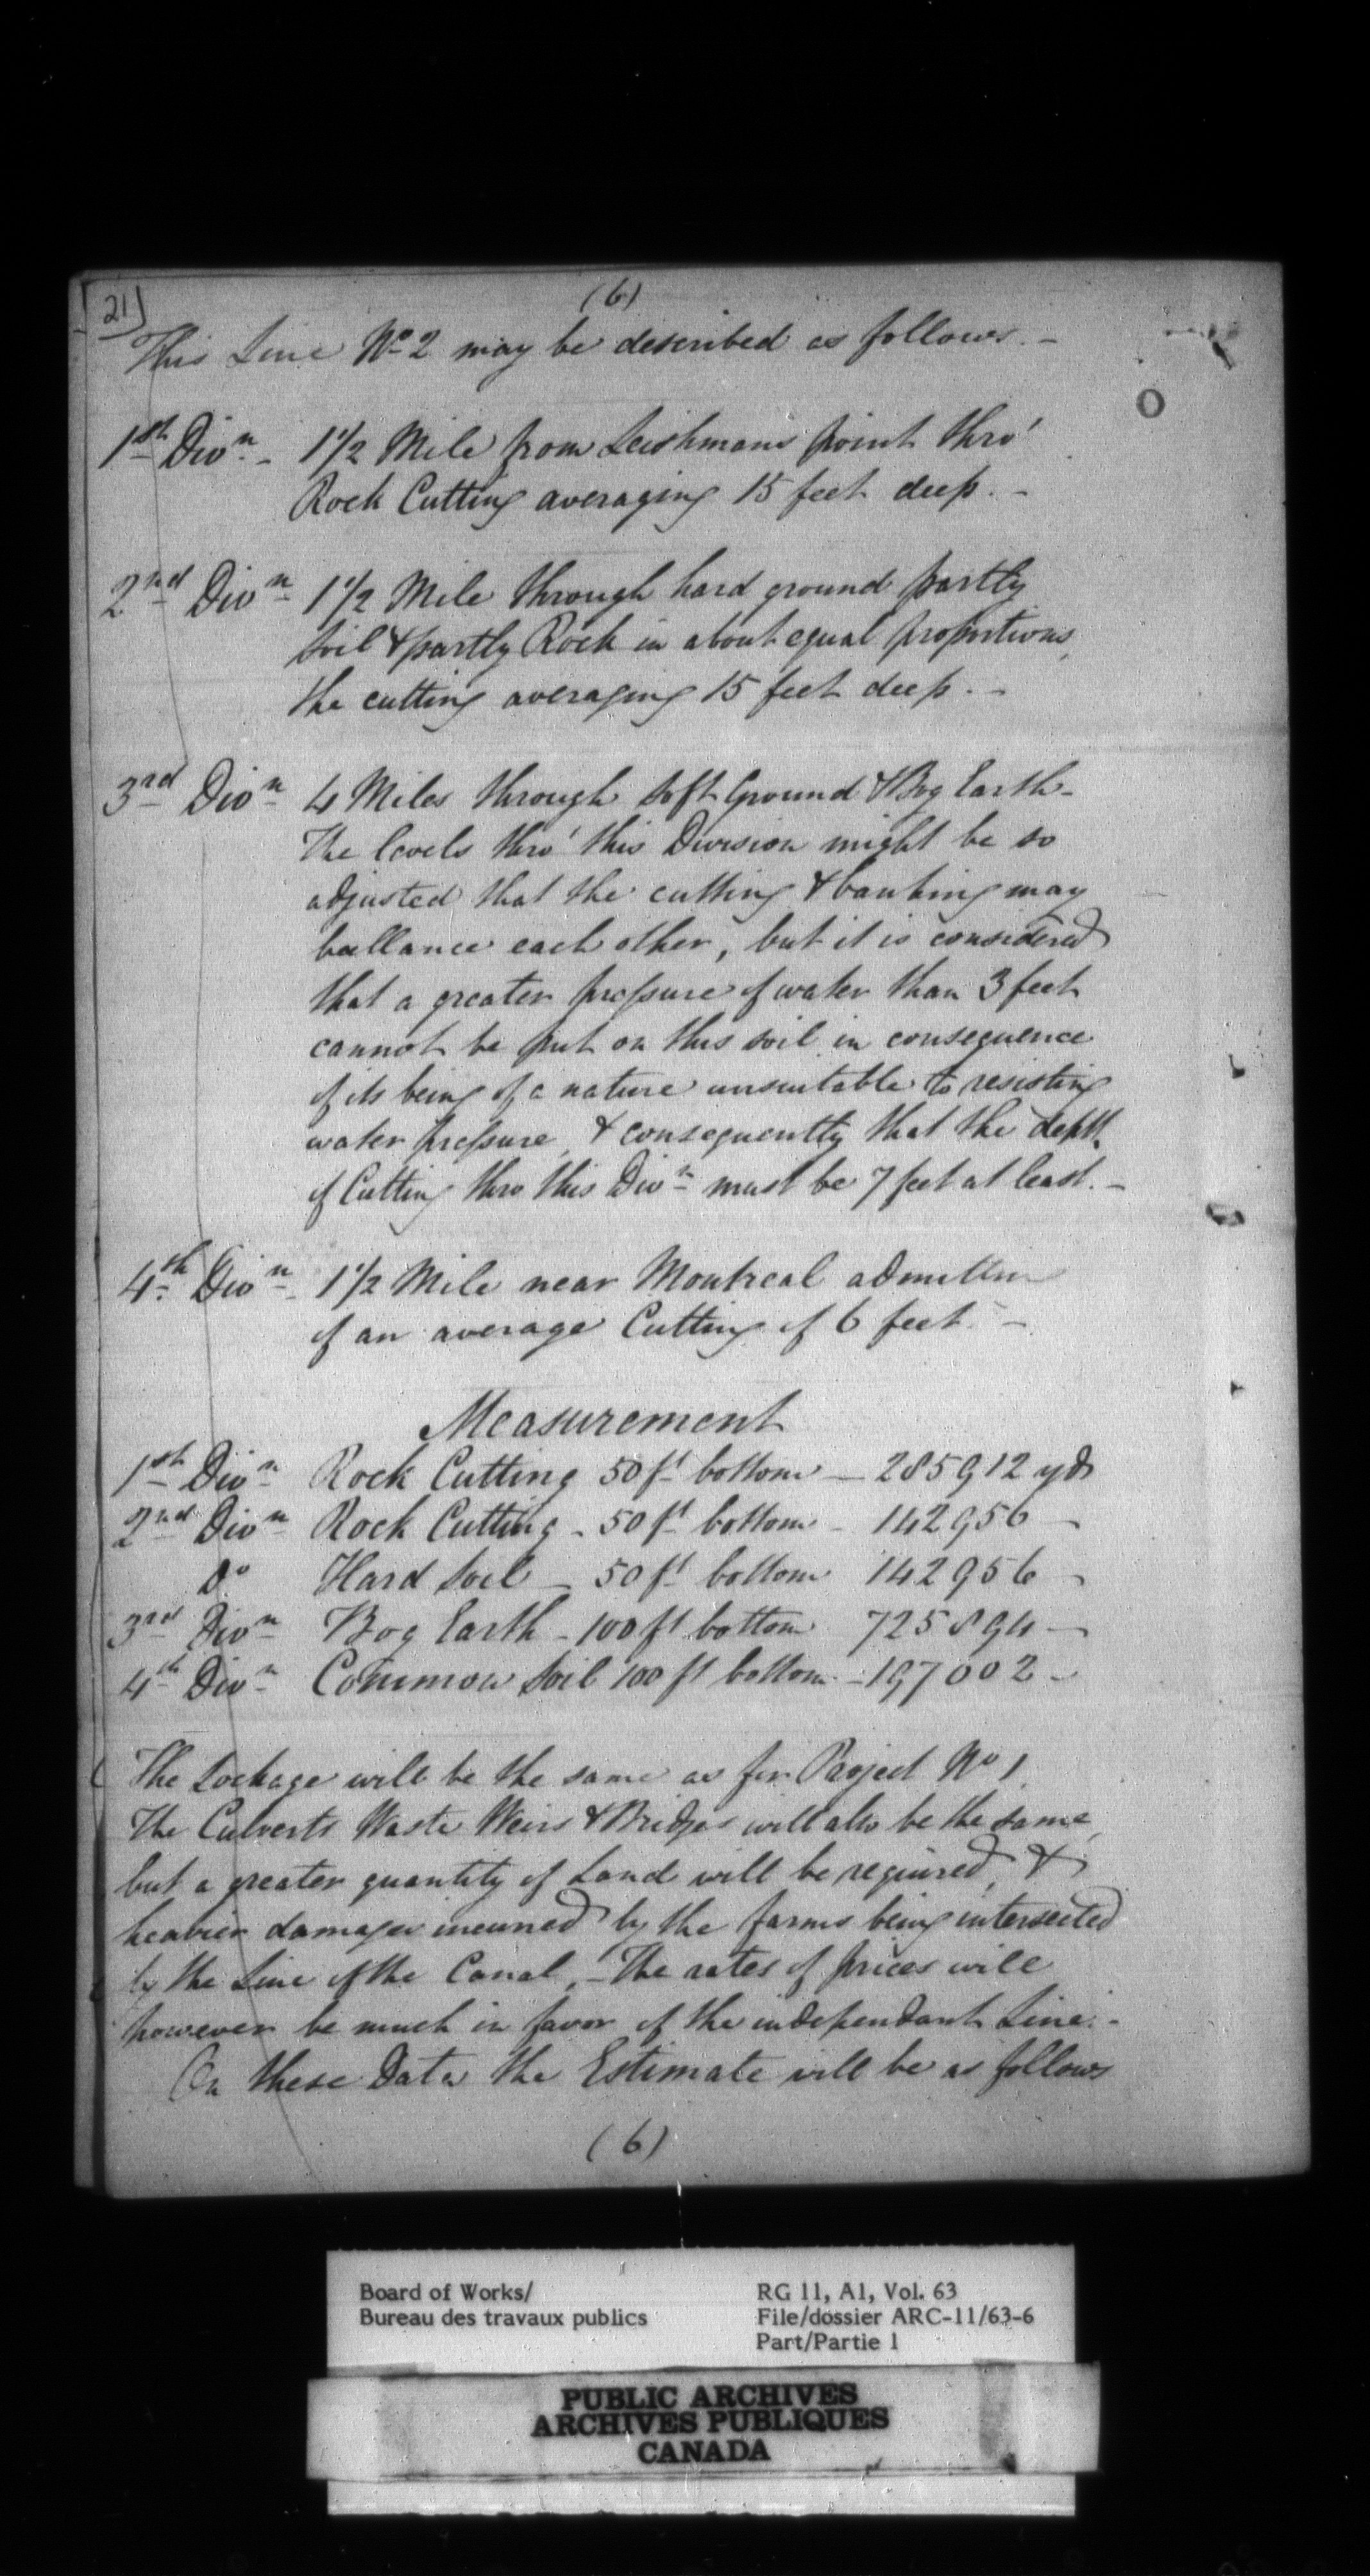 21
(6)
This Line No 2 may be described as follows. -
1st Divn - 1 1/2 Mile from Leishmans point thro'
Rock Cutting averaging 15 feet deep. -
2nd Divn 1 1/2 Mile through hard ground partly
soil & partly Rock in about equal proportions,
the cutting averaging 15 feet deep. -
3rd Divn 4 Miles through soft Ground & Bog Earth -
The levels thro' this Division might be so
adjusted that the cutting & banking may
ballance each other, but it is considered
that a greater pressure of water than 3 feet
cannot be put on this soil in consequence
of its being of a nature unsuitable to resisting
water pressure, & consequently that the depth
of Cutting thro this Divn must be 7 feet at least. -
4th Divn - 1 1/2 Mile near Montreal
of an average Cutting of 6 feet. -
Measurement
1st Divn Rock Cutting 50 ft bottom - 285912 yds
2nd Divn Rock Cutting - 50 ft bottom - 142956 -
Do Hard Soil - 50 ft bottom 142956 -
3rd Divn Bog Earth - 100 ft bottom 725894 -
4th Divn Common Soil 100 ft bottom - 197002 -
The Lockage will be the same as for Project No 1.
The Culverts Waste Weirs & Bridges will also be the same,
but a greater quantity of Land will be required, &
heavier damages incurred by the farms being intersected
by the Line of the Canal, - The rates of prices will
however be much in favor of the independant Line. -
On these Data the Estimate will be as follows
(6)
Board of Works/
Bureau des travaux publics
RG 11, A1, Vol. 63
File/dossier ARC-11/63-6
Part/Partie 1
PUBLIC ARCHIVES
ARCHIVES PUBLIQUES
CANADA